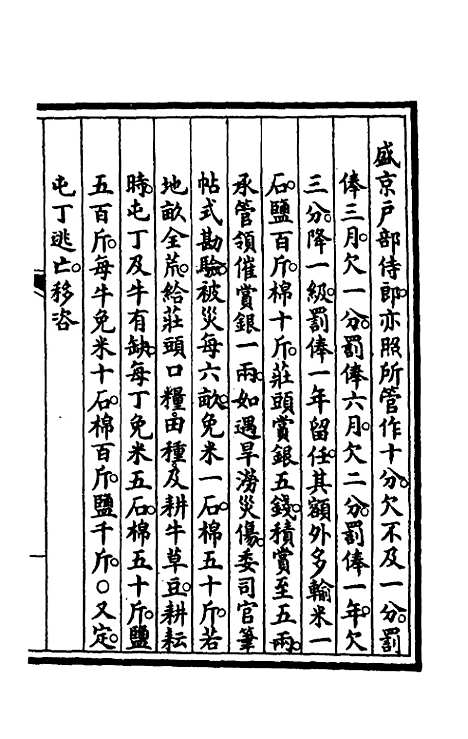 盛京戶部侍郎。亦照所管作十分。欠不及一分。罰
俸三月。欠一分。罰俸六月。欠二分。罰俸一年。欠
三分。降一級。罰俸一年留任。其額外多輸米一
石。鹽百斤。棉十斤。莊頭賞銀五錢。積賞至五兩。
承管領催賞銀一兩。如遇旱澇災傷。委司官筆
帖式勘驗。被災每六畝。免米一石。棉五十斤。若
地畝全荒。給莊頭口糧。田種及耕牛草豆。耕耘
時。屯丁及牛有缺。每丁免米五石。棉五十斤。鹽
五百斤。每牛免米十石。棉百斤。鹽千斤。○又定。
屯丁逃亡。移咨